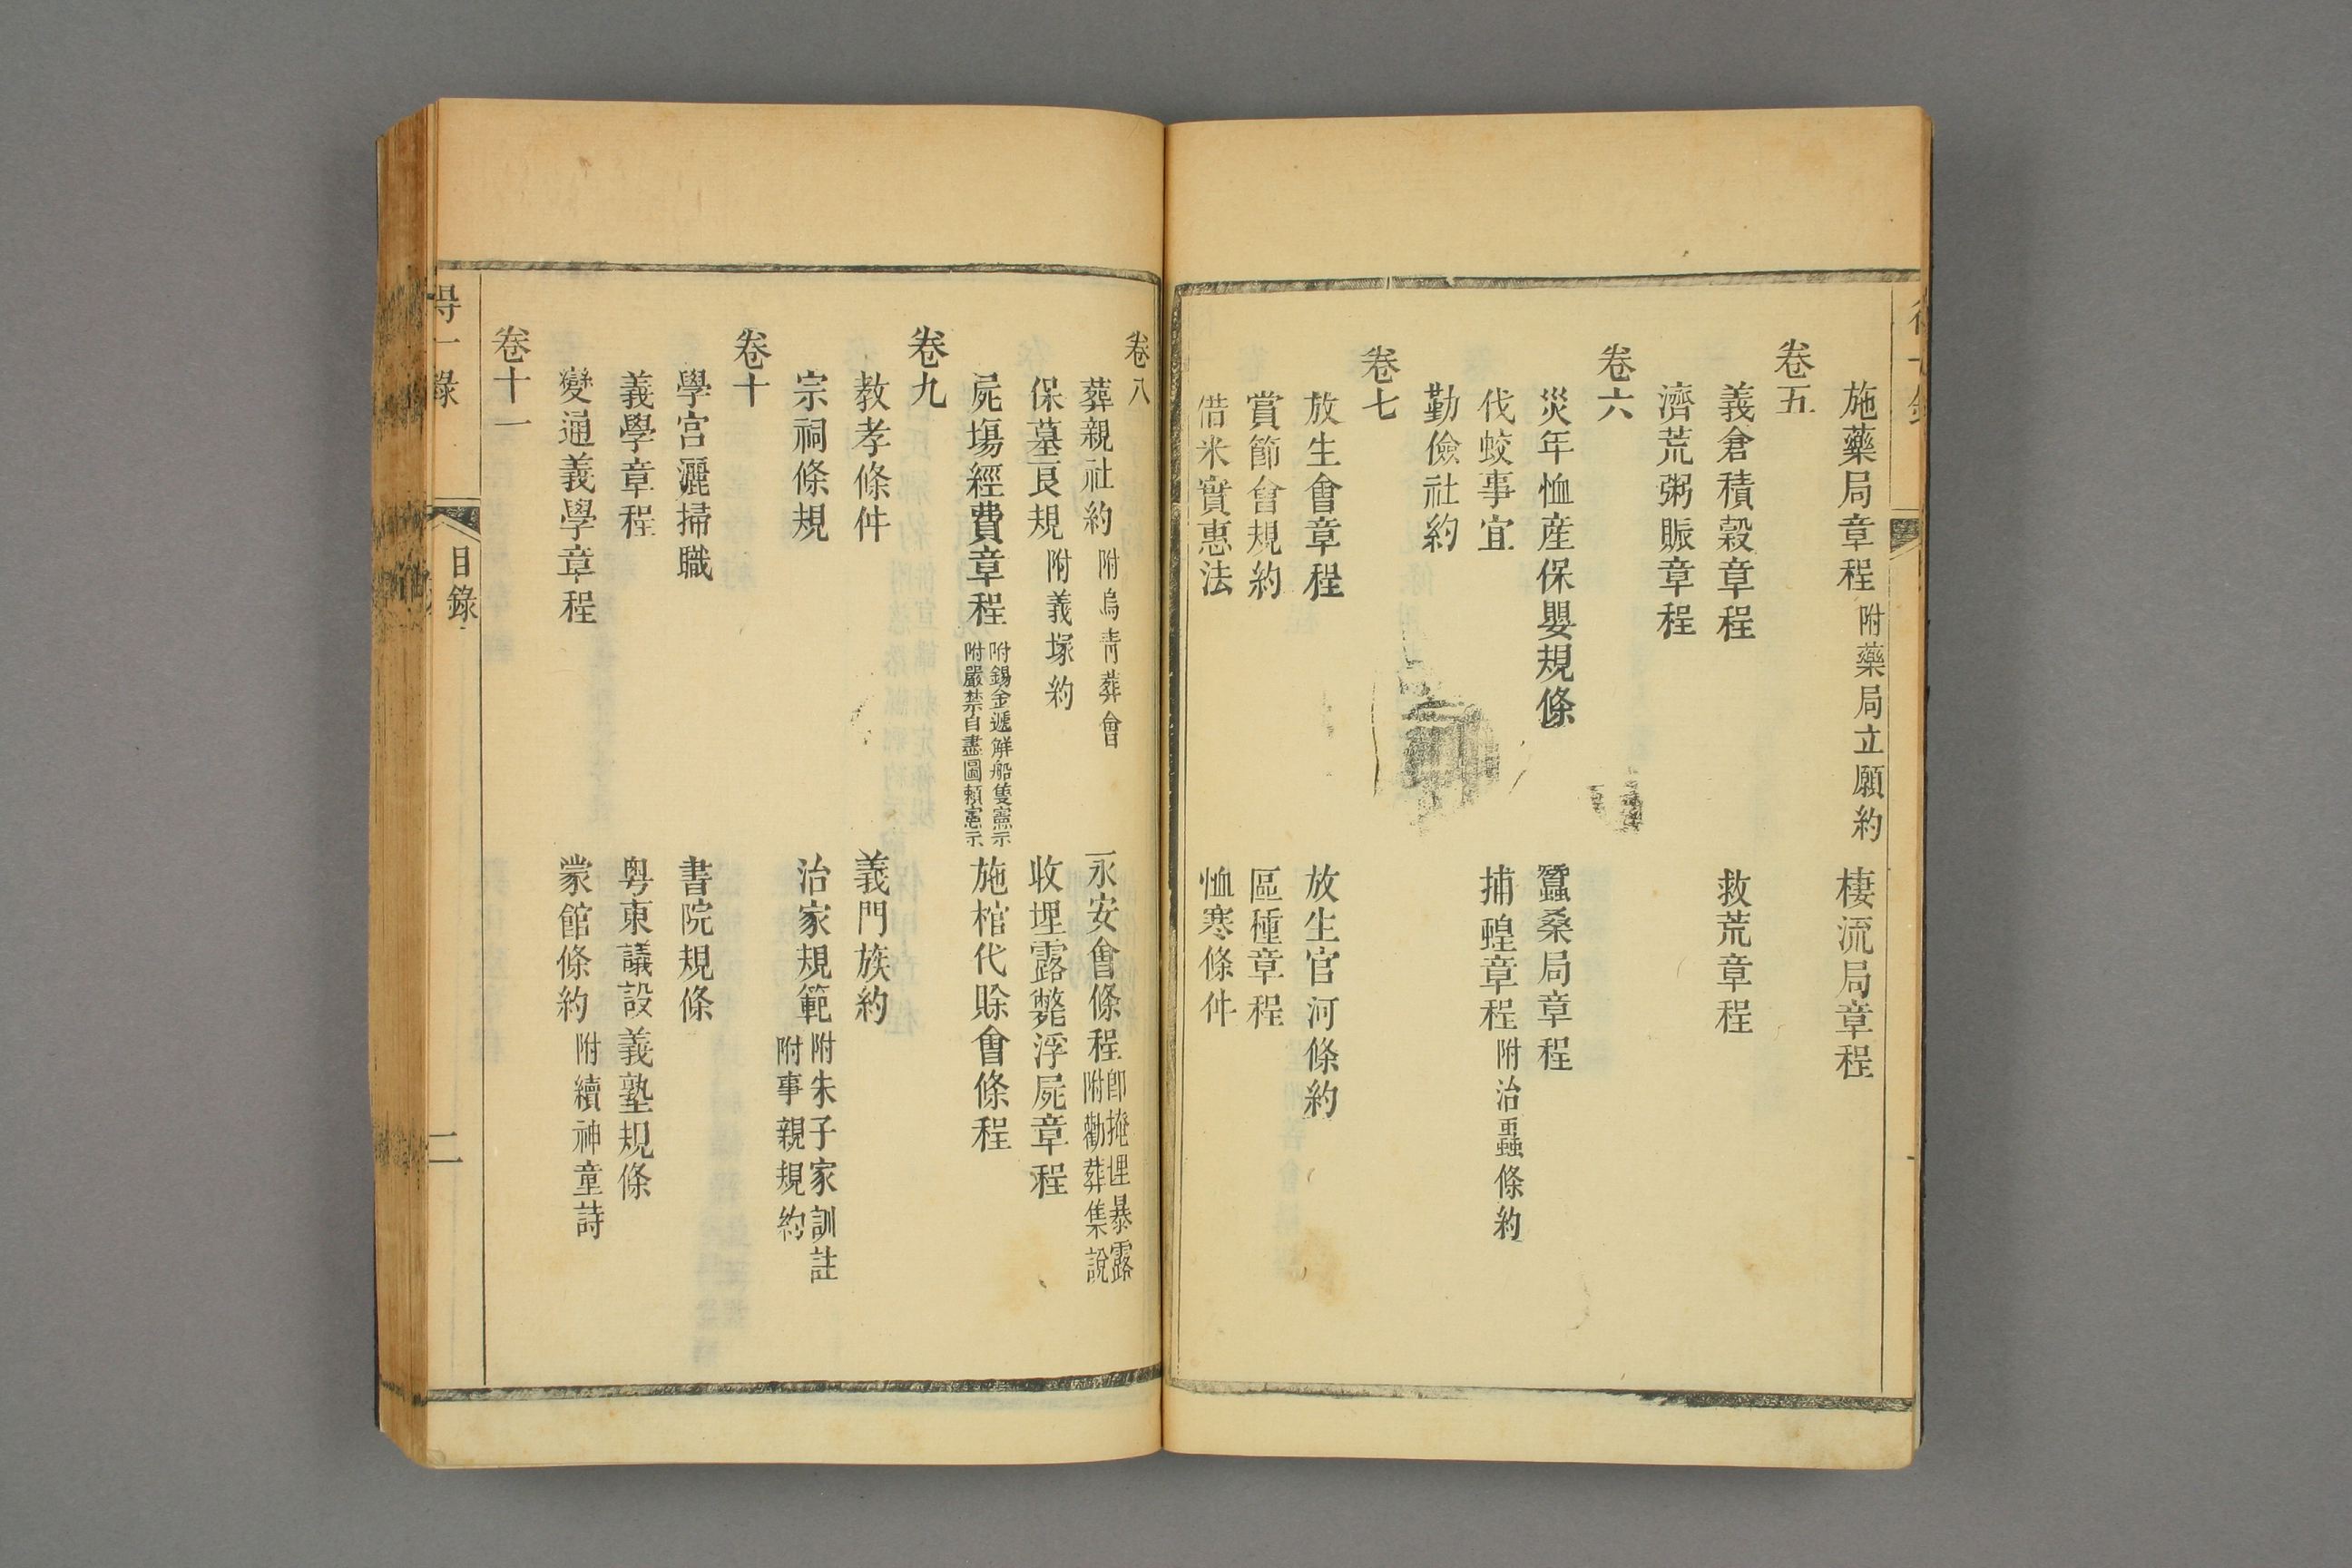 施藥局章程 附藥局立願約 棲流局章程
卷五
義倉積穀章程 救荒章程
濟荒粥賑章程
卷六
災年恤産保嬰規條 蠶桑局章程
伐蛟事宜 捕蝗章程 附治蝨條約
勤儉社約
卷七
放生會章程 放生官河條約
賞節會規約 區種章程
借米實惠法 恤寒條件
卷八
葬親社約 附烏青葬會 永安會條程 卽掩埋暴露 附勸葬集說
保墓良規 附義塚約 收埋露斃浮屍章程
屍塲經費章程 附錫金遞解船隻憲示 附嚴禁自盡圖賴憲示 施棺代賒會條程
卷九
教孝條件 義門族約
宗祠條規 治家規範 附朱子家訓註 附事親規約
卷十
學宮灑掃職 書院規條
義學章程 粤東議設義塾規條
變通義學章程 蒙館條約 附續神童詩
卷十一
得一錄 目錄 二